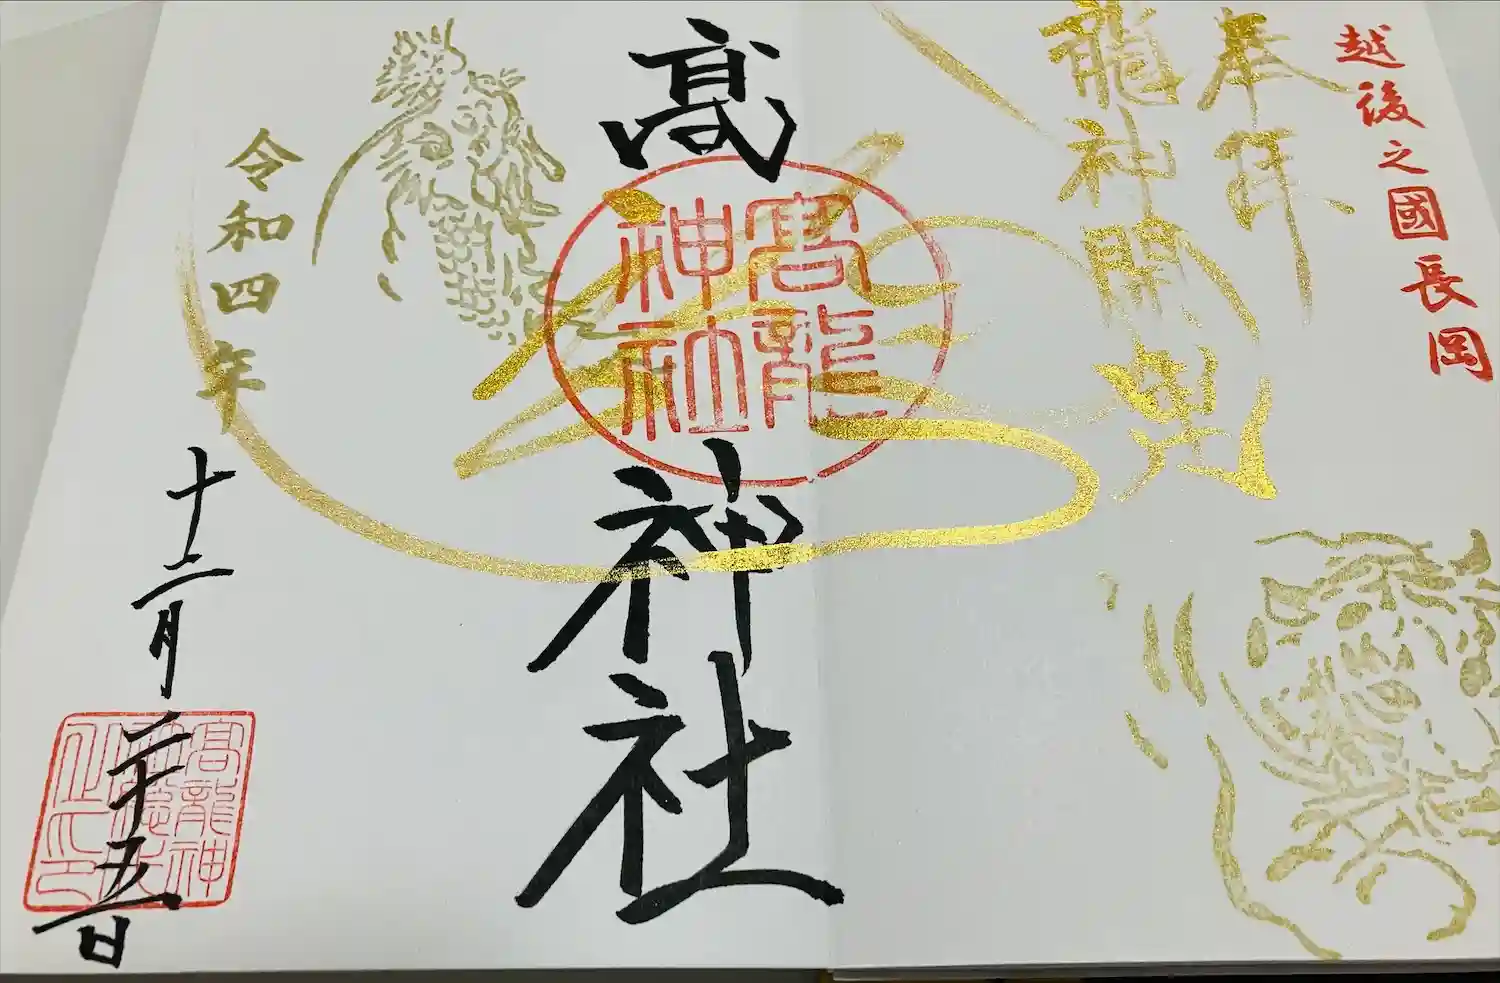 越後之國長岡
奉拝
龍神開
髙龍神社
髙龍
神社
令和四年
十二月二十五日
髙龍神